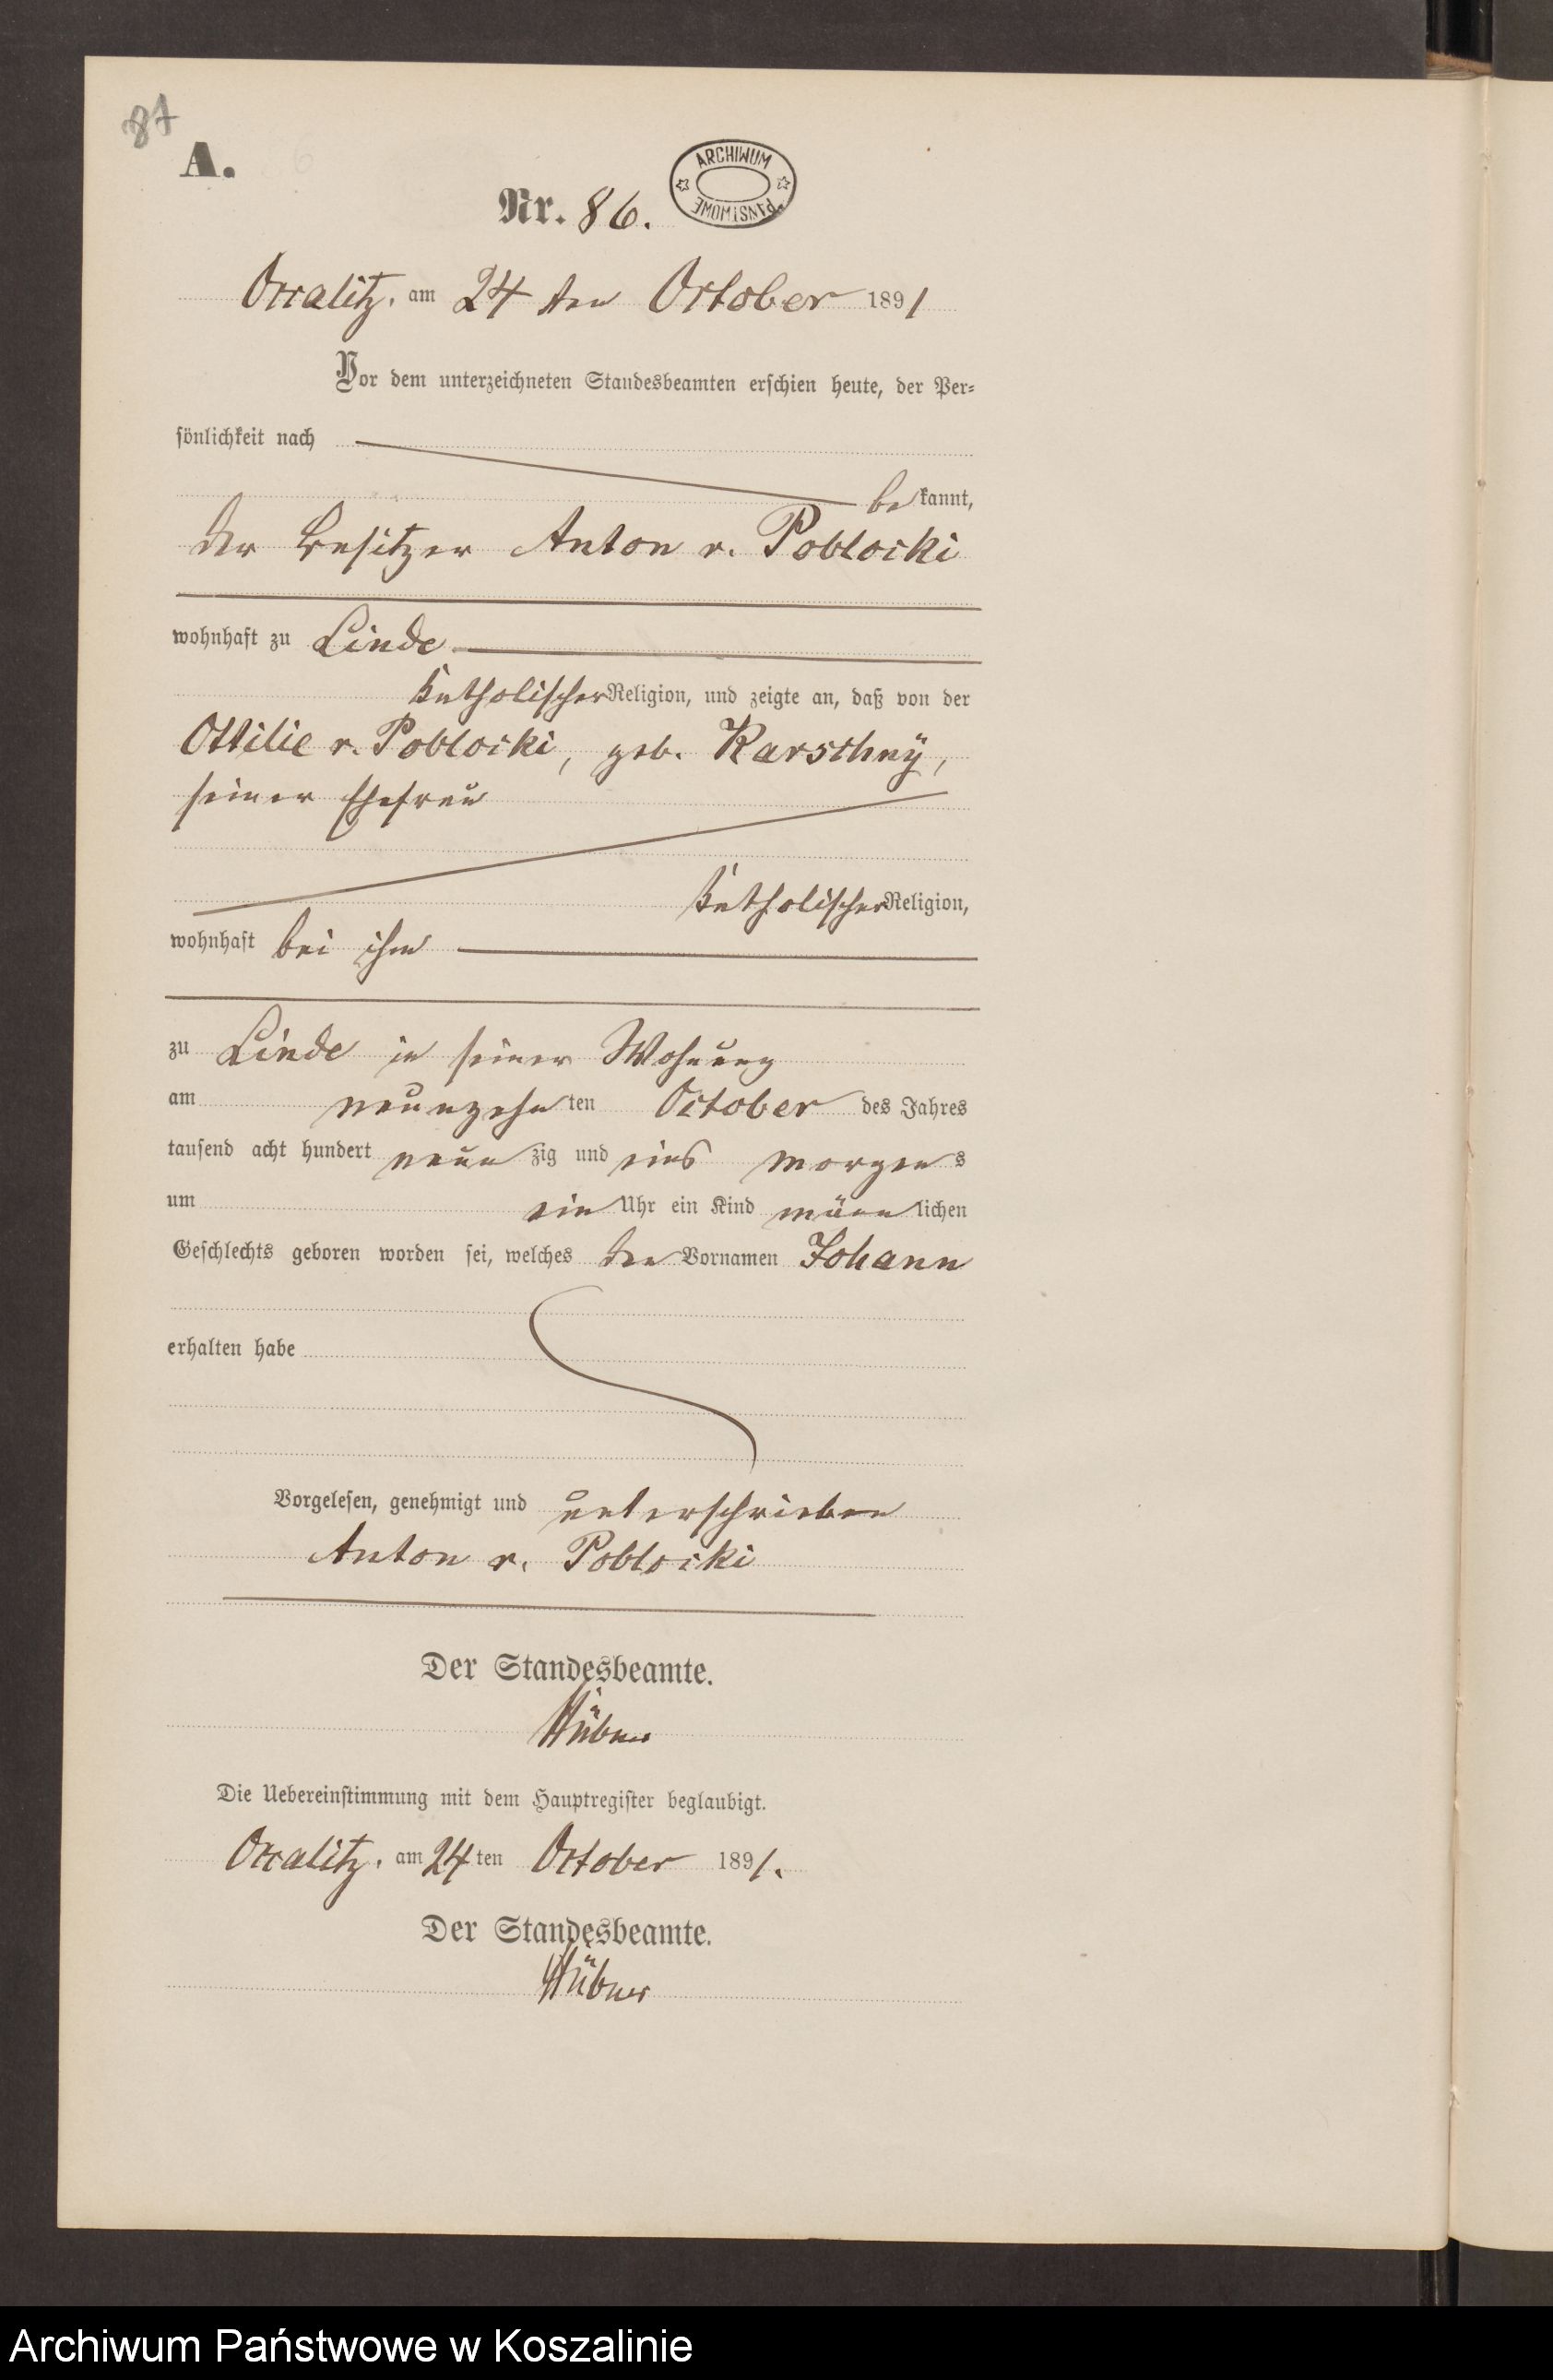 87
A.
ARCHIWUM PAŃSTWOWE
Nr. 86.
Occalitz, am 24 ten October 1891
Vor dem unterzeichneten Standesbeamten erschien heute, der Per-
sönlichkeit nach
bekannt,
der Besitzer Anton v. Poblocki
wohnhaft zu Linde
katholischer Religion, und zeigte an, daß von der
Ottilie v. Poblocki, geb. Karschny,
seiner Ehefrau
katholischer Religion,
wohnhaft bei ihm
zu Linde in seiner Wohnung
am neunzehnten October des Jahres
tausend acht hundert neunzig und eins morgens
um ein Uhr ein Kind männlichen
Geschlechts geboren worden sei, welches den Vornamen Johann
erhalten habe
Vorgelesen, genehmigt und unterschrieben
Anton v. Poblocki
Der Standesbeamte.
Hübner
Die Uebereinstimmung mit dem Hauptregister beglaubigt.
Occalitz, am 24ten October 1891.
Der Standesbeamte.
Hübner
Archiwum Państwowe w Koszalinie